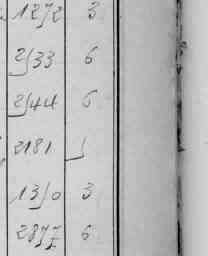 1272 3
2533 6
2544 6
2181 1
1350 3
2877 6